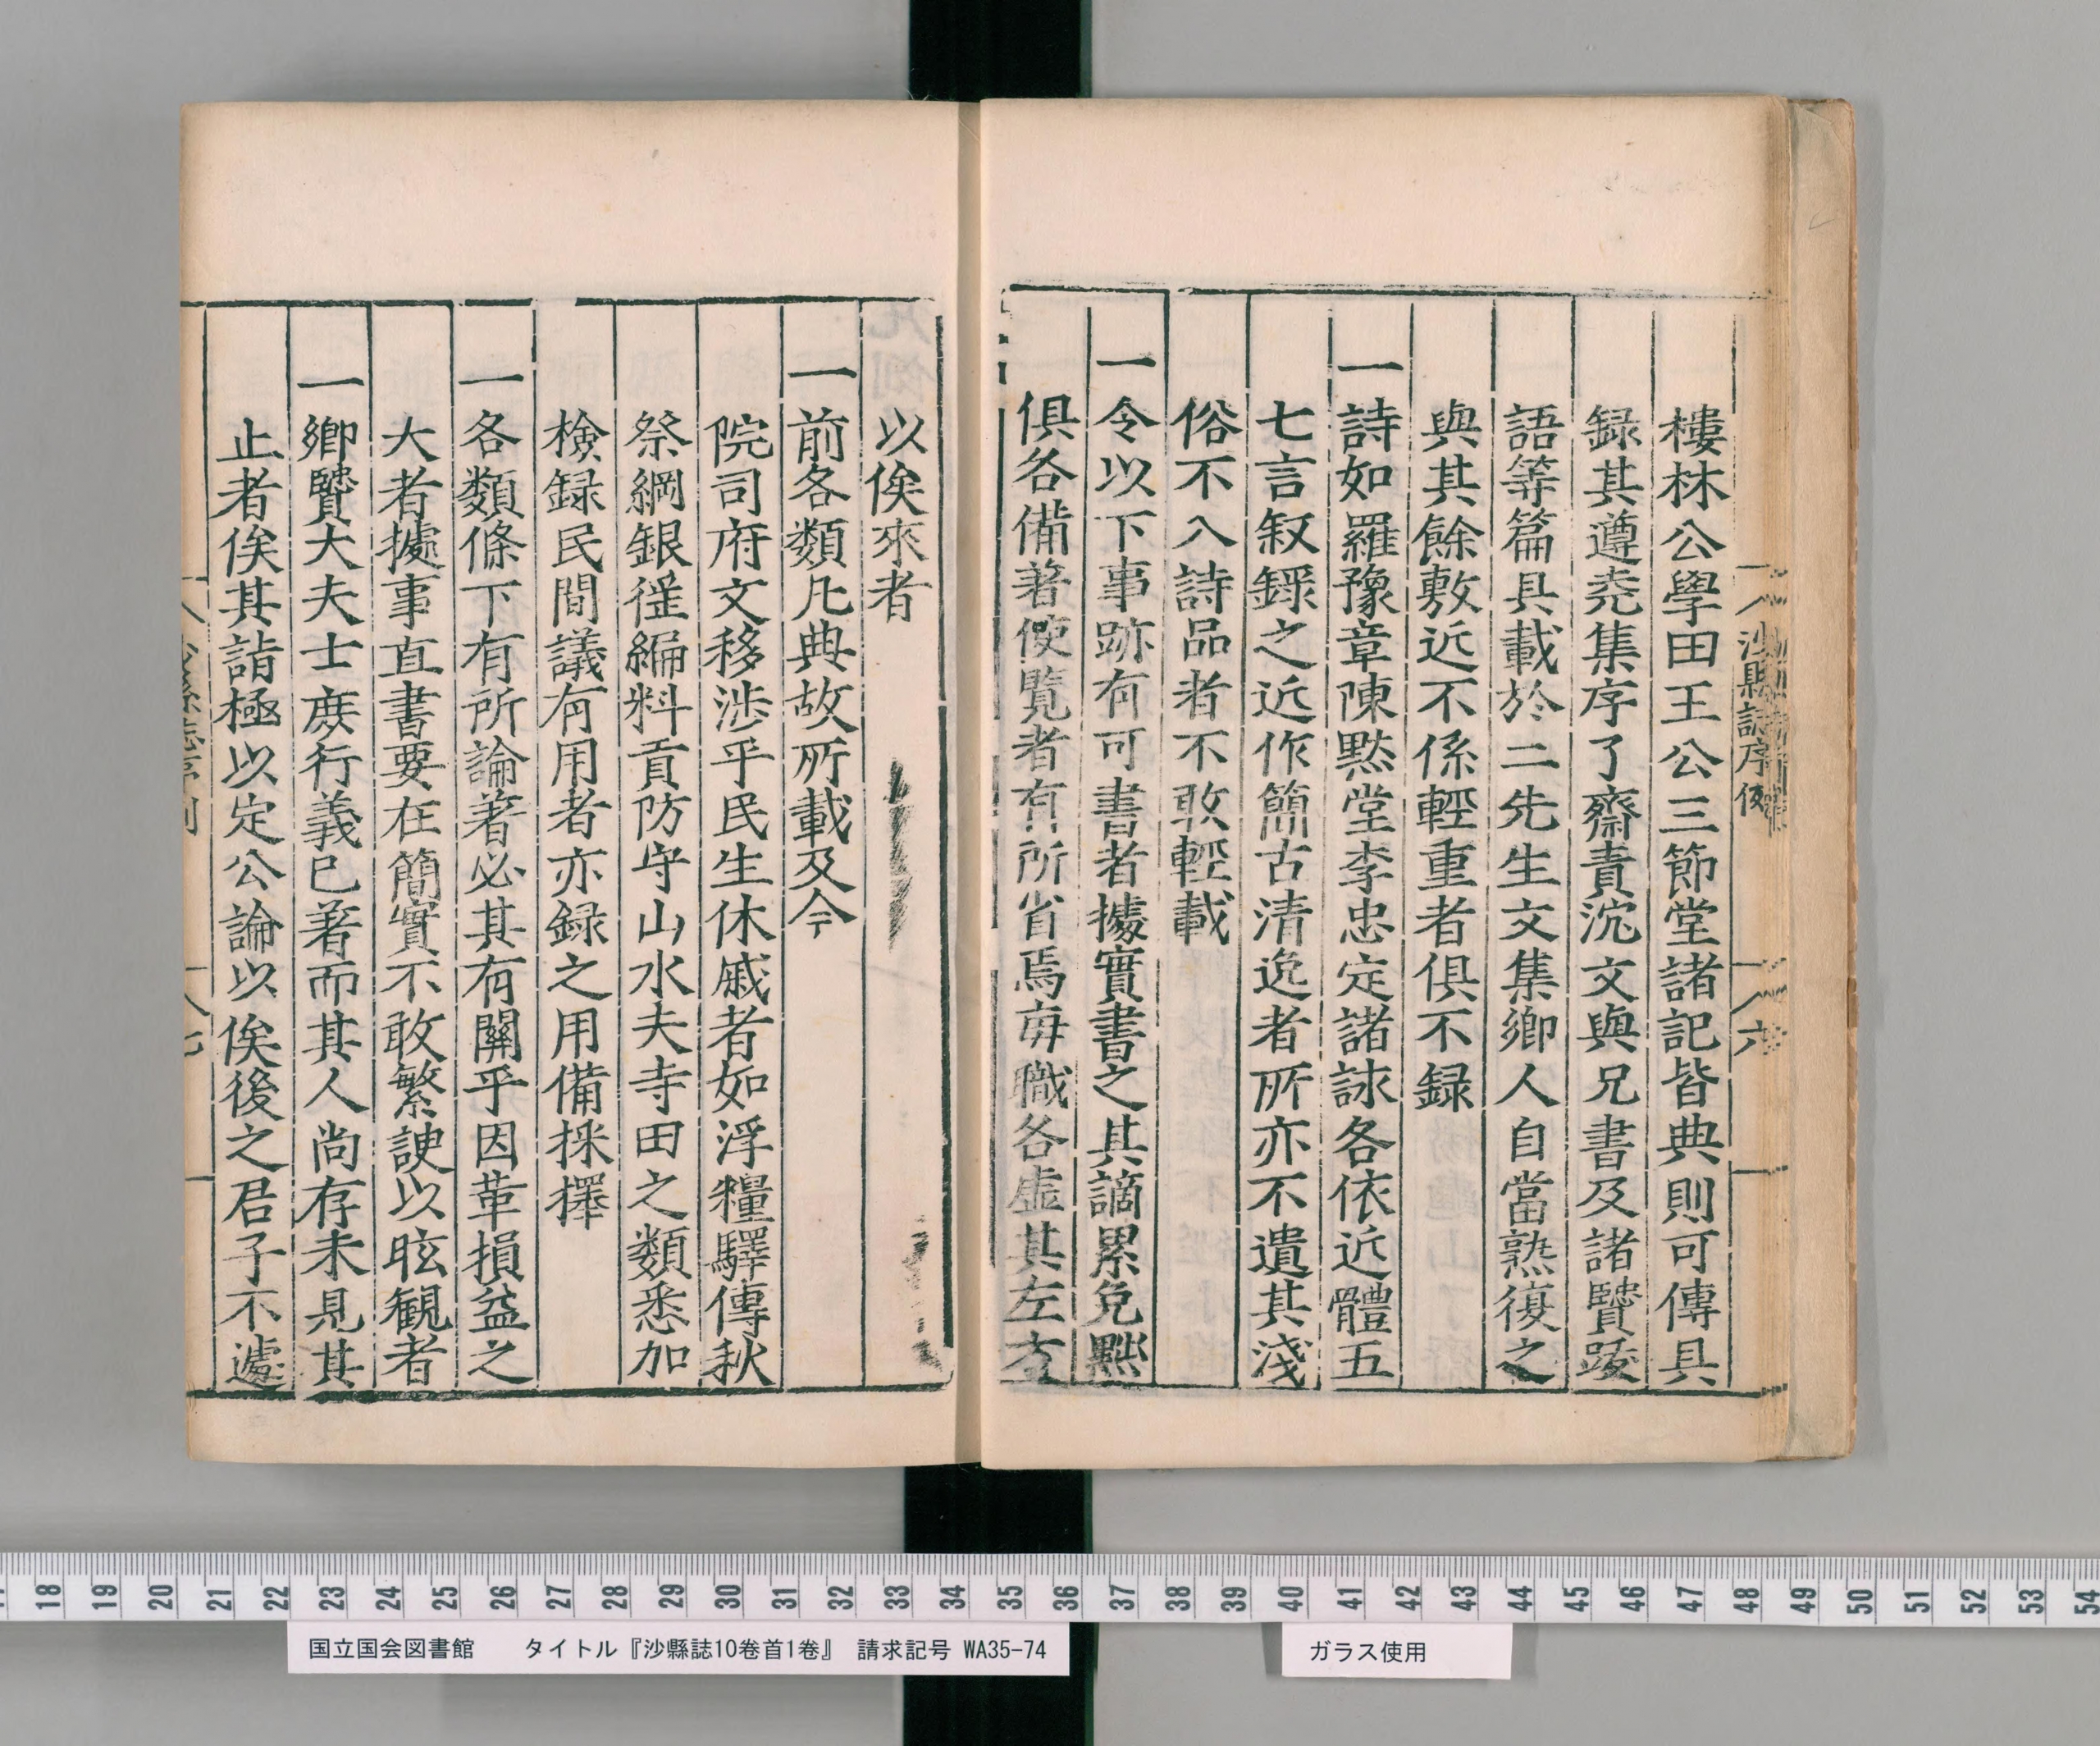 樓林公學田王公三節堂諸記皆典則可傳具
録其遵尭集序了齋責沈文與兄書及諸賢跋
語等篇具載於二先生文集鄉人自當熟復之
與其餘敷近不係輕重者俱不録
一詩如羅豫章陳黙堂李忠定諸詠各依近體五
七言叙録之近作簡古清逸者所亦不遺其淺
俗不入詩品者不敢輕載
一令以下事跡有可書者據實書之其謫累免黜
俱各備著便覽者有所省焉每職各虛其左方
沙縣誌序例
六
以俟來者
一前各類凡典故所載及今
院司府文移涉乎民生休戚者如浮糧驛傳秋
祭綱銀徭編料貢防守山水夫寺田之類悉加
檢録民間議有用者亦録之用備採擇
一各類條下有所論著必其有關乎因革損益之
大者據事直書要在簡實不敢繁諛以眩觀者
一鄉賢大夫士庶行義已著而其人尚存未見其
止者俟其詣極以定公論以俟後之君子不遽
七
17 18 19 20 21 22 23 24 25 26 27 28 29 30 31 32 33 34 35 36 37 38 39 40 41 42 43 44 45 46 47 48 49 50 51 52 53 54
国立国会図書館 タイトル『沙縣誌10巻首1巻』 請求記号 WA35-74
ガラス使用